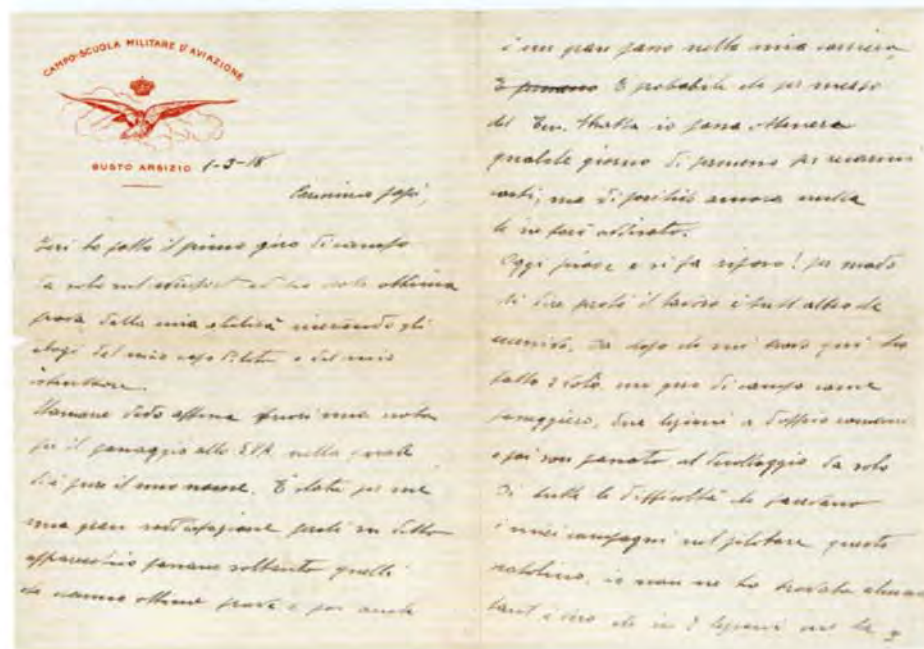 CAMPO-SCUOLA MILITARE D'AVIAZIONE
BUSTO ARSIZIO 1-3-18
Carissimo papà,
Ieri ho fatto il primo giro di campo
da solo sul ed ho dato ottima
prova della mia abilità meritando gli
elogi del mio capo pilota e del mio
istruttore.
Stamane vedo affissa fuori una nota
per il passaggio allo SVA nella quale
c'è pure il mio nome. È stata per me
una gran soddisfazione perché su detto
apparecchio passano soltanto quelli
che danno ottime prove e poi anche
è un gran passo nella mia carriera.
È probabile che per mezzo
del Ten. io possa ottenere
qualche giorno di permesso per recarmi
costì, ma di positivo ancora nulla
Oggi piove e si fa riposo! per modo
di dire perché il lavoro è tutt'altro che
Da dopo che mi trovo qui ho
fatto un giro di campo come
passeggiero, due lezioni a doppio comando
e poi son passato al da solo
Di tutte le difficoltà che
i miei compagni nel pilotare questo
io non ne ho trovata alcuna
tant'è vero che in 3 lezioni